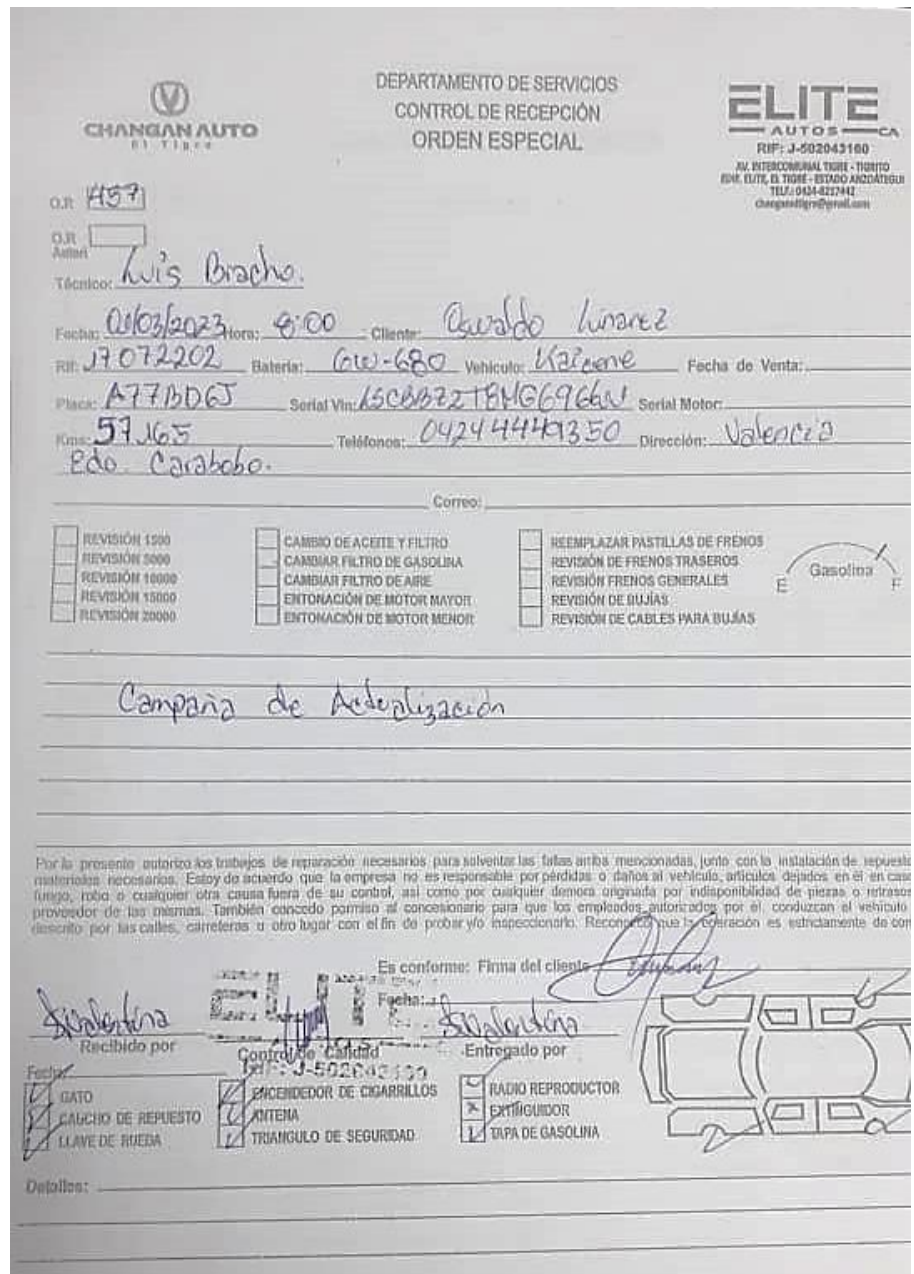 CHANGAN AUTO
El Tigre
DEPARTAMENTO DE SERVICIOS
CONTROL DE RECEPCIÓN
ORDEN ESPECIAL
ELITE
AUTOS CA
RIF: J-502043160
AV. INTERCOMUNAL TIGRE - TIGRITO
EDIF. ELITE, EL TIGRE - ESTADO ANZOÁTEGUI
TELF.: 0424-8237442
O.R 4157
O.R
Autori
Técnico: Luis Bracho.
Fecha: 01/03/2023 Hora: 8:00 Cliente: Oswaldo Linarez
Rif: 17072202 Bateria: GW-680 Vehiculo: Kaicene Fecha de Venta:
Placa: A77BD6J Serial Vin: Serial Motor:
Kms: 57.165 Teléfonos: 04244449350 Dirección: Valencia
Edo. Carabobo.
Correo:
REVISIÓN 1500
REVISIÓN 5000
REVISIÓN 10000
REVISIÓN 15000
REVISIÓN 20000
CAMBIO DE ACEITE Y FILTRO
CAMBIAR FILTRO DE GASOLINA
CAMBIAR FILTRO DE AIRE
ENTONACIÓN DE MOTOR MAYOR
ENTONACIÓN DE MOTOR MENOR
REEMPLAZAR PASTILLAS DE FRENOS
REVISIÓN DE FRENOS TRASEROS
REVISIÓN FRENOS GENERALES
REVISIÓN DE BUJÍAS
REVISIÓN DE CABLES PARA BUJÍAS
E Gasolina F
Campaña de Actualización
Por la presente autorizo los trabajos de reparación necesarios para solventar las fallas arriba mencionadas, junto con la instalación de repuesto
materiales necesarios. Estoy de acuerdo que la empresa no es responsable por pérdidas o daños al vehículo, artículos dejados en él en caso
fuego, robo o cualquier otra causa fuera de su control, así como por cualquier demora originada por indisponibilidad de piezas o retrasos
proveedor de las mismas. También concedo permiso al concesionario para que los empleados autorizados por él, conduzcan el vehículo
descrito por las calles, carreteras u otro lugar con el fin de probar y/o inspeccionarlo. Reconozco que la operación es estrictamente de con
Es conforme: Firma del cliente
Fecha:
Recibido por
Control de Calidad
Entregado por
Fecha:
GATO
CAUCHO DE REPUESTO
LLAVE DE RUEDA
ENCENDEDOR DE CIGARRILLOS
ANTENA
TRIANGULO DE SEGURIDAD
RADIO REPRODUCTOR
EXTINGUIDOR
TAPA DE GASOLINA
Detalles: